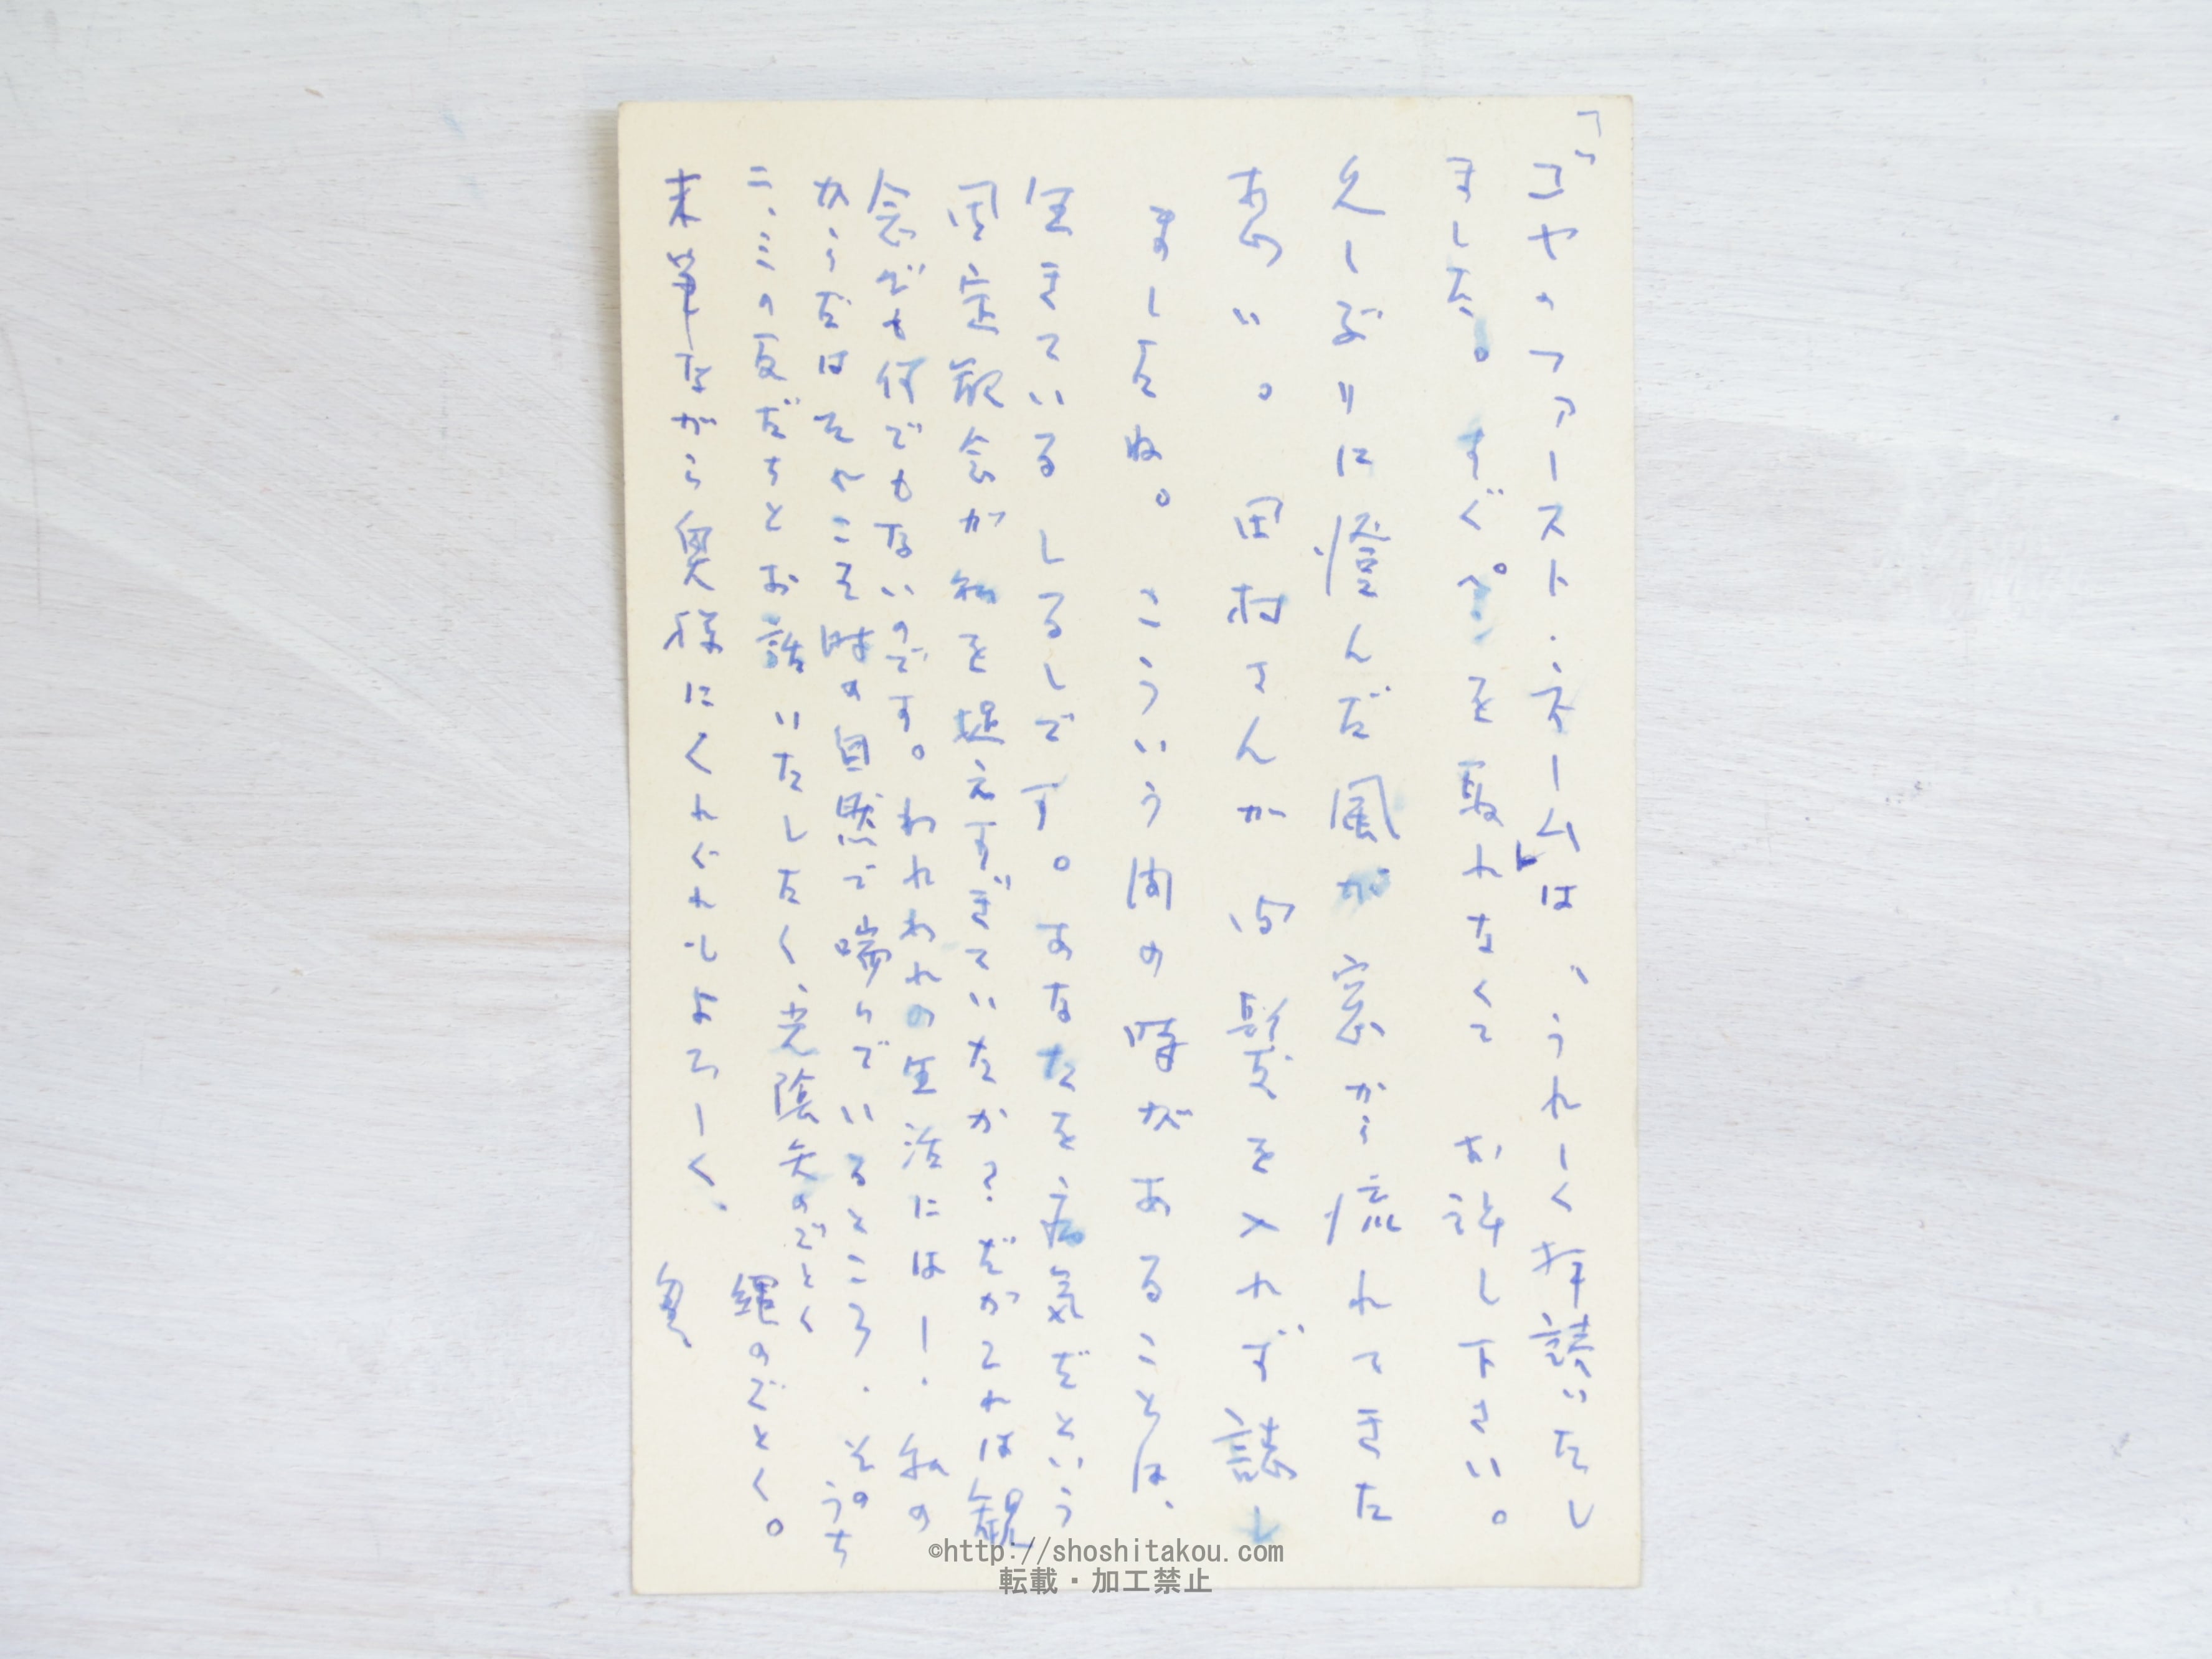 「ゴヤのファースト・ネームは」うれしく拝読いたし
ました。すぐペンを取れなくて お許し下さい。
久しぶりに澄んだ風が窓から流れてきた
思い。田村さんが 間髪を入れず誌し
ましたね。こういう間の時があることは、
生きている しるしです。あなたを病気だという
固定観念が私を捉えすぎていたか？だがこれは観
念でも何でもないのです。われわれの生活には！. 私の
からだはそれこそ時の自然で喘いでいるところ. そのうち
二、三の友だちとお話いたしたく、光陰矢のごとく
縄のごとく。
末筆ながら奥様にくれぐれもよろしく.
©http://shoshitakou.com
転載・加工禁止